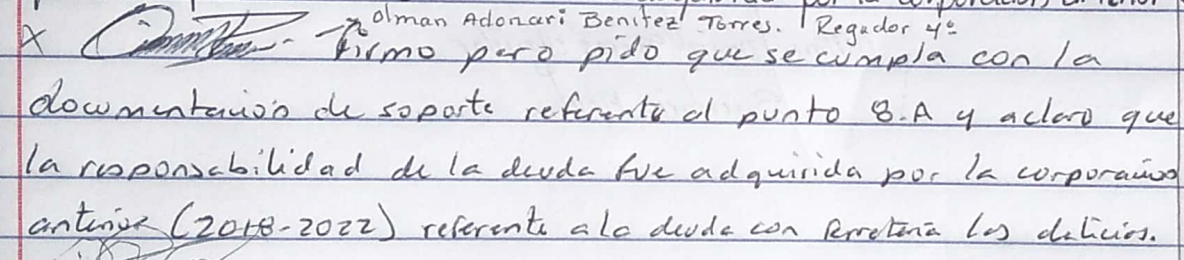 Olman Adonari Benitez Torres. Regador 4º
X Firmo pero pido que se cumpla con la
documentación de soporte referente al punto 8.A y aclaro que
la responsabilidad de la deuda fue adquirida por la corporación
anterior (2018-2022) referente a la deuda con ferreteria las delicias.